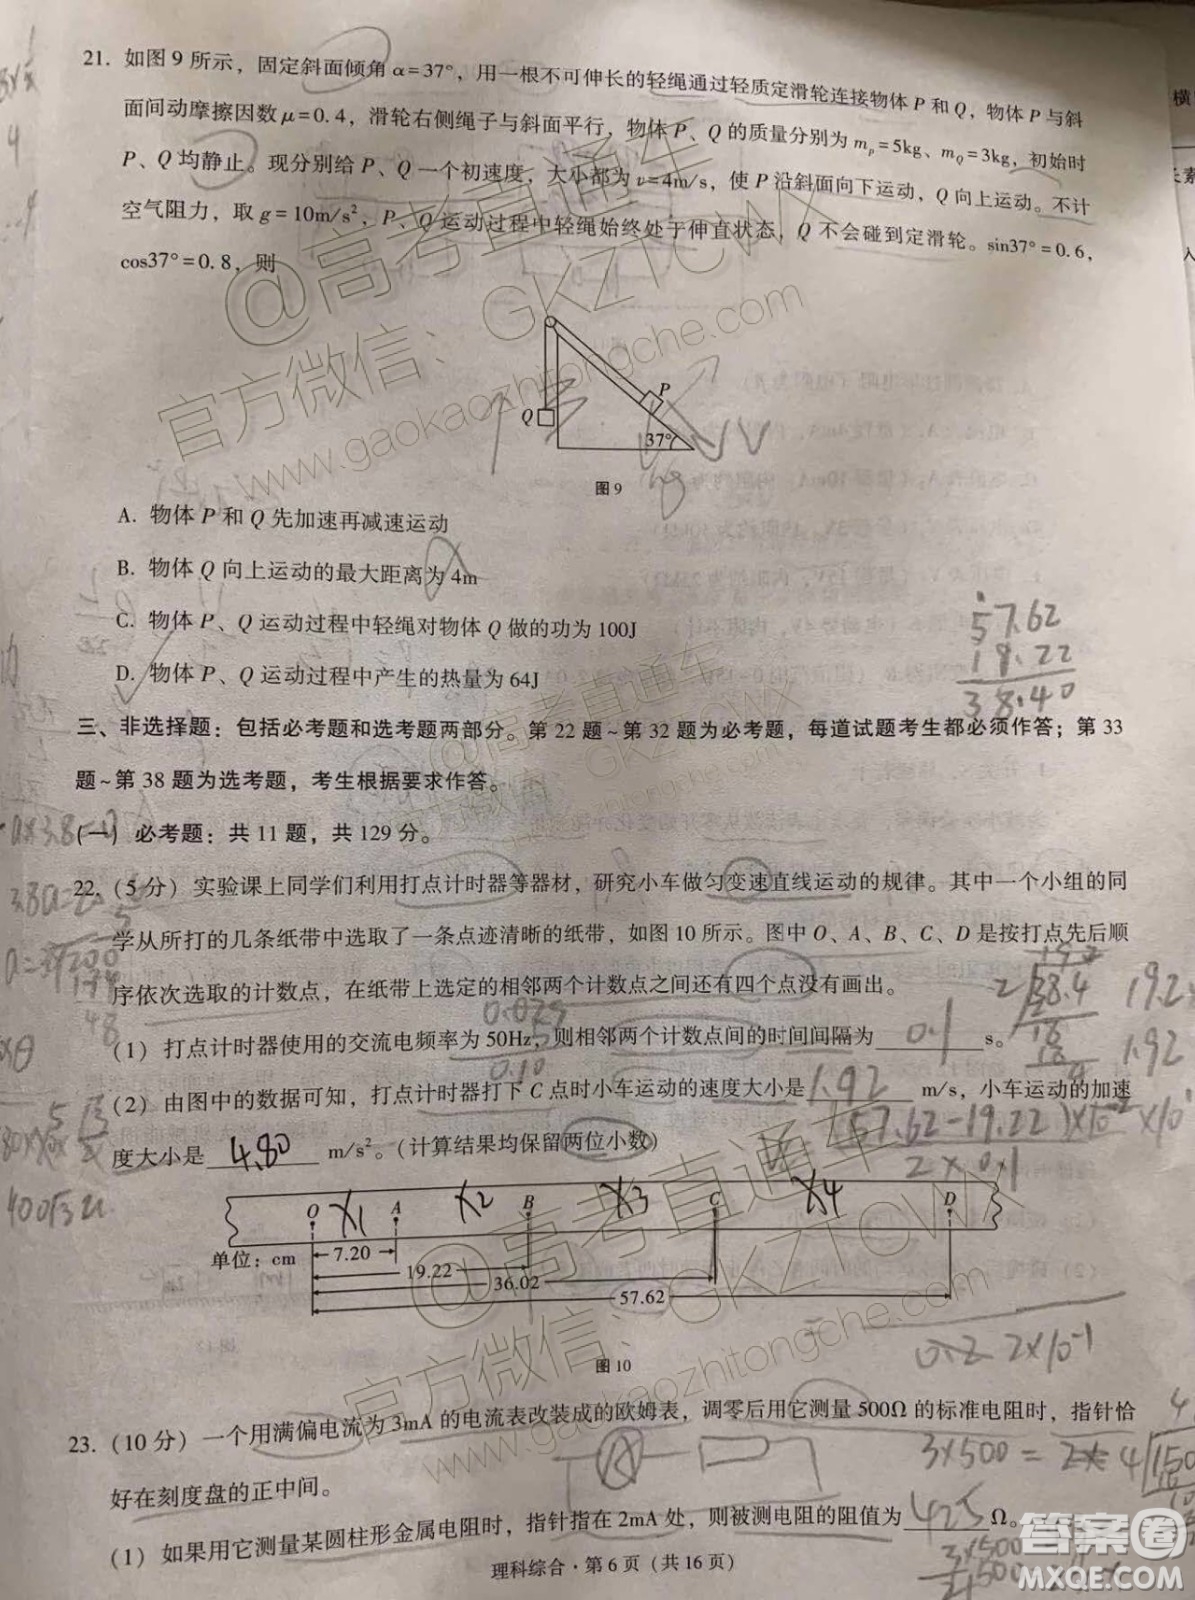 21. 如图9所示，固定斜面倾角α=37°，用一根不可伸长的轻绳通过轻质定滑轮连接物体P和Q，物体P与斜
面间动摩擦因数μ=0.4，滑轮右侧绳子与斜面平行，物体P、Q的质量分别为mp=5kg、mQ=3kg，初始时
P、Q均静止。现分别给P、Q一个初速度，大小都为v=4m/s，使P沿斜面向下运动，Q向上运动。不计
空气阻力，取g=10m/s²，P、Q运动过程中轻绳始终处于伸直状态，Q不会碰到定滑轮。sin37°=0.6，
cos37°=0.8，则
P
Q
37°
图9
A. 物体P和Q先加速再减速运动
B. 物体Q向上运动的最大距离为4m
C. 物体P、Q运动过程中轻绳对物体Q做的功为100J
D. 物体P、Q运动过程中产生的热量为64J
57.62
19.22
38.40
三、非选择题：包括必考题和选考题两部分。第22题~第32题为必考题，每道试题考生都必须作答；第33
题~第38题为选考题，考生根据要求作答。
(一) 必考题：共11题，共129分。
22. (5分) 实验课上同学们利用打点计时器等器材，研究小车做匀变速直线运动的规律。其中一个小组的同
学从所打的几条纸带中选取了一条点迹清晰的纸带，如图10所示。图中O、A、B、C、D是按打点先后顺
序依次选取的计数点，在纸带上选定的相邻两个计数点之间还有四个点没有画出。
(1) 打点计时器使用的交流电频率为50Hz，则相邻两个计数点间的时间间隔为 0.1 s。
0.10
(2) 由图中的数据可知，打点计时器打下C点时小车运动的速度大小是 1.92 m/s，小车运动的加速
度大小是 4.80 m/s²。(计算结果均保留两位小数)
O X1 A X2 B X3 C X4 D
单位：cm
7.20
19.22
36.02
57.62
图10
23. (10分) 一个用满偏电流为3mA的电流表改装成的欧姆表，调零后用它测量500Ω的标准电阻时，指针恰
好在刻度盘的正中间。
(1) 如果用它测量某圆柱形金属电阻时，指针指在2mA处，则被测电阻的阻值为 425 Ω。
理科综合·第6页（共16页）
@高考直通车
官方微信：GKZTCWX
www.gaokaozhitongche.com
@高考直通车
官方微信：GKZTCWX
www.gaokaozhitongche.com
答案圈
MXQE.COM